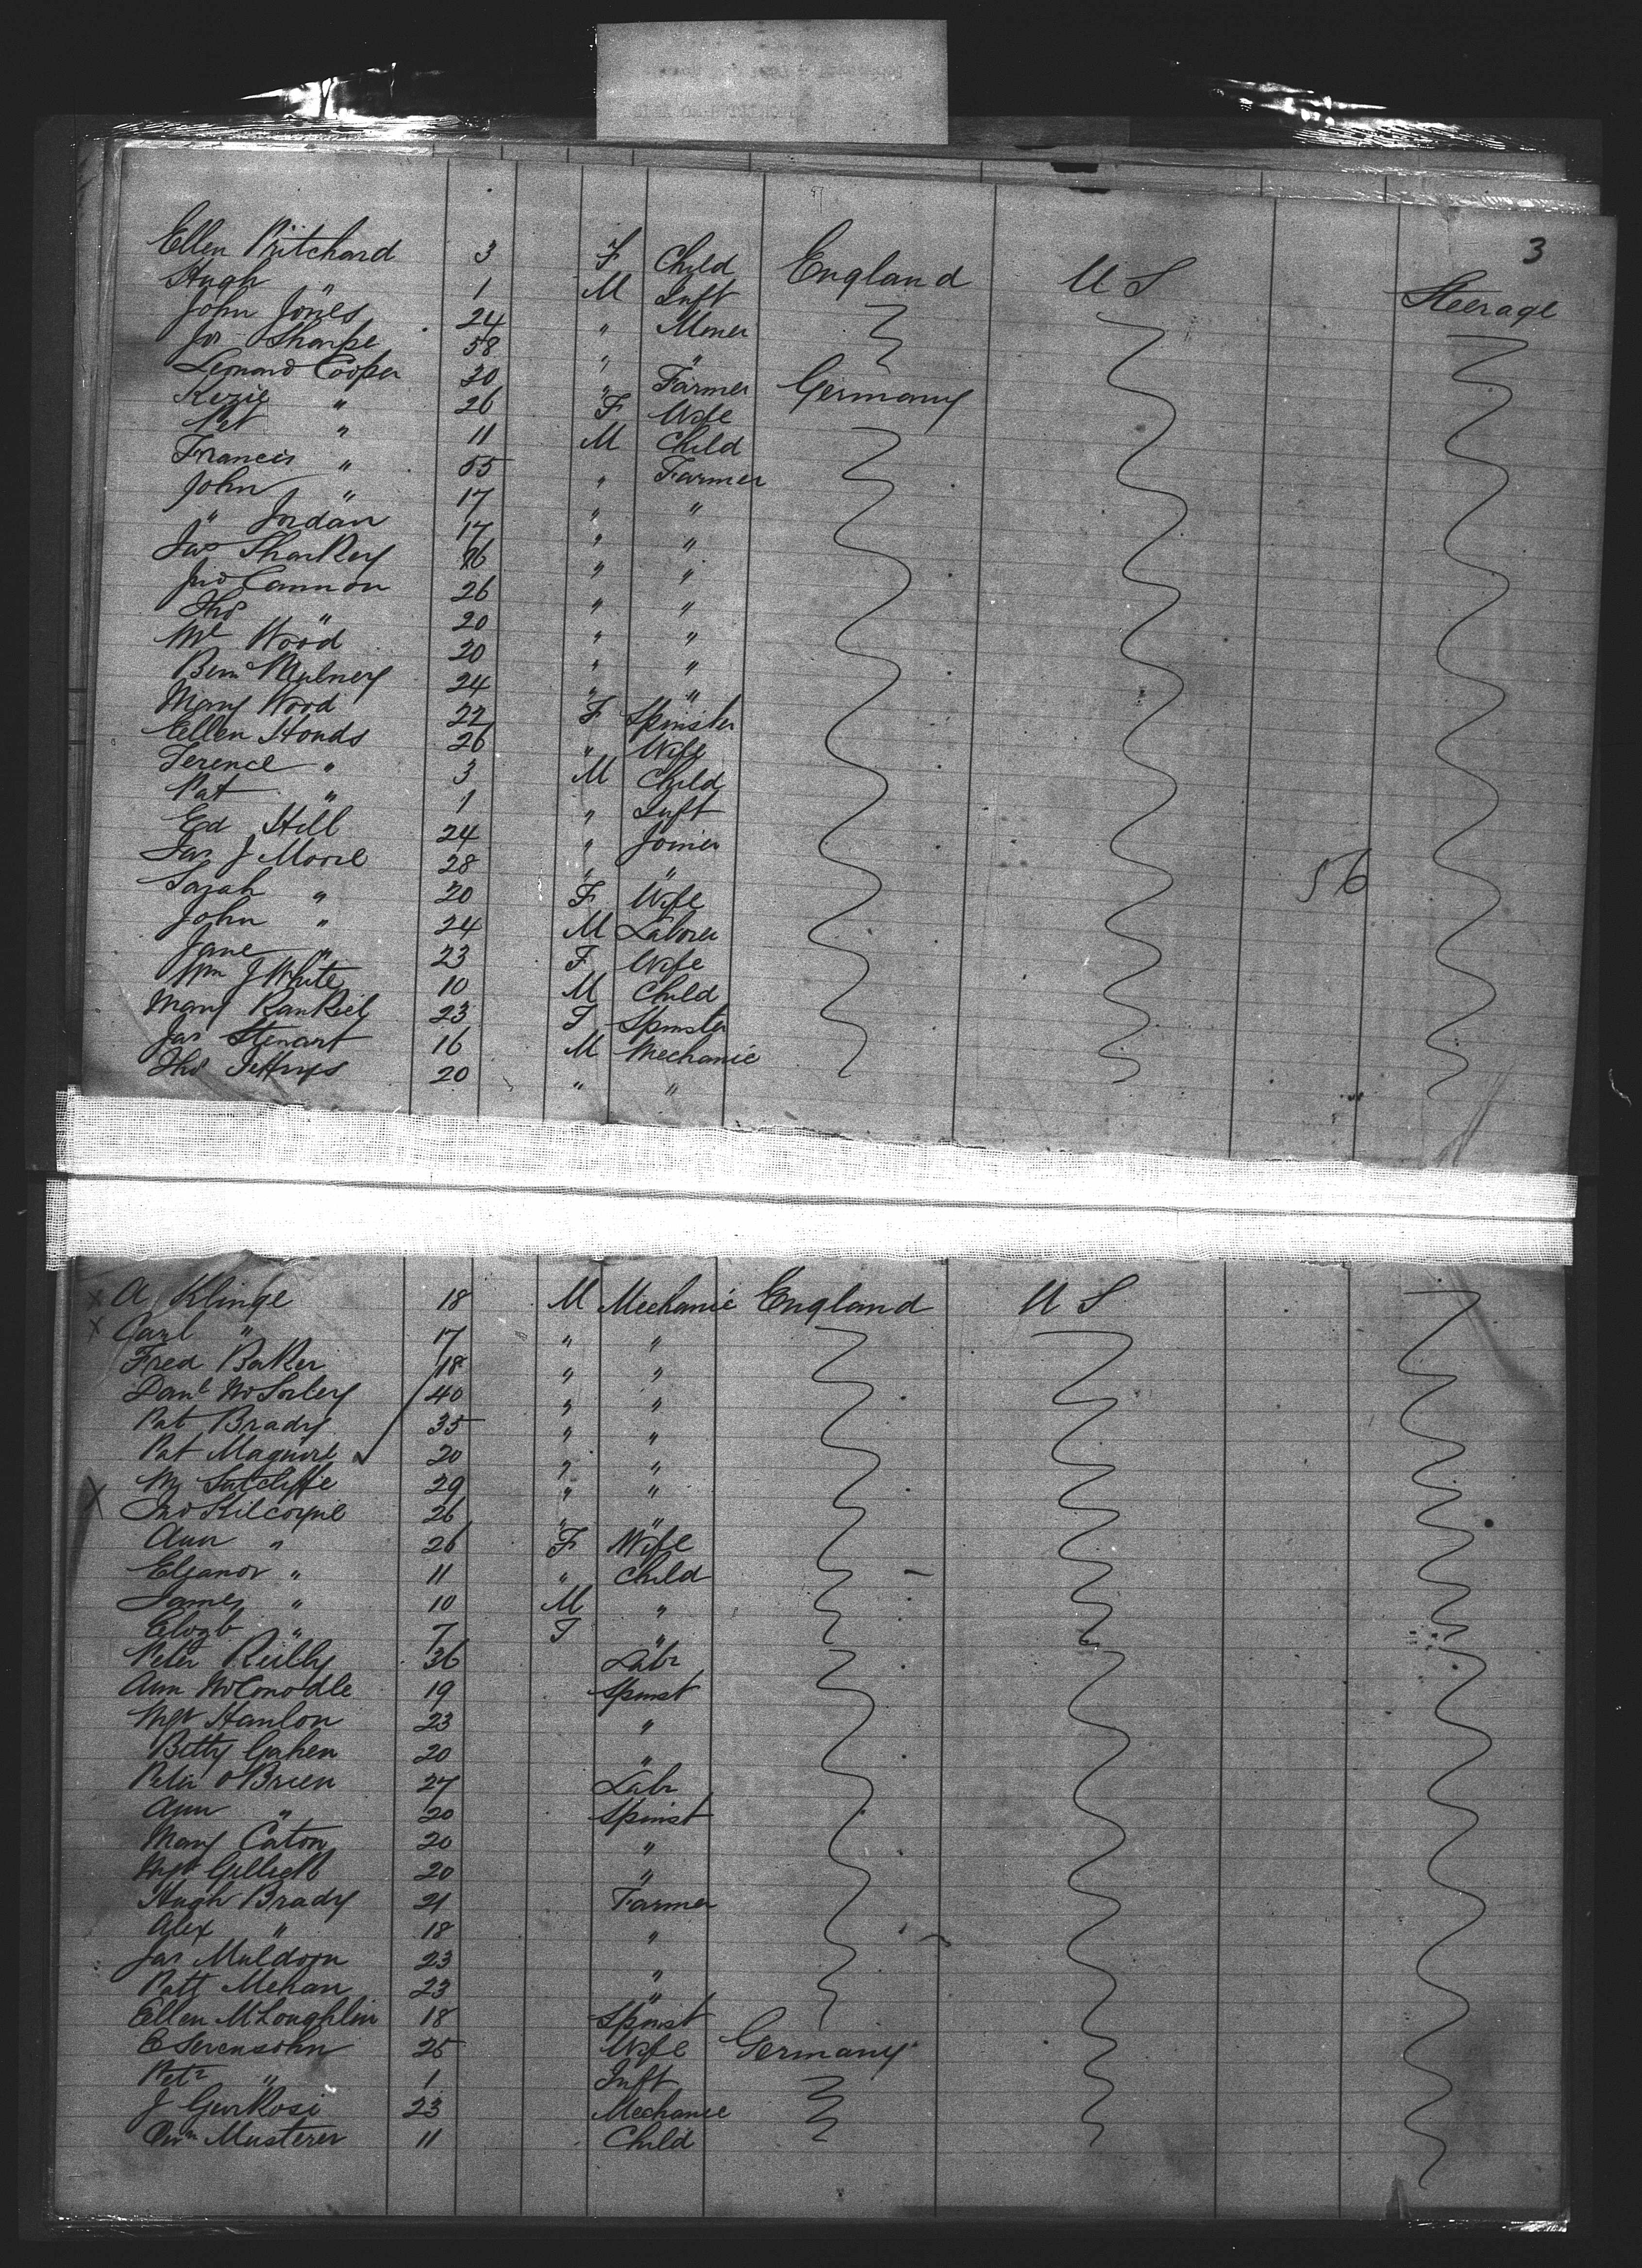 3
Ellen Pritchard 3 F Child England U S Steerage
Hugh " 1 M Inft
John Jones 24 " Miner
Jos Sharpe 58 " "
Leonard Cooper 30 " Farmer Germany
Kezie " 26 F Wife
Pet " 11 M Child
Francis " 55 " Farmer
John " 17 " "
" Jordan 17 " "
Jas Sharkey 26 " "
Jno Cannon 26 " "
Thos " 20 " "
Ml Wood 20 " "
Bern Mulney 24 " "
Mary Wood 22 F Spinster
Ellen Honds 26 " Wife
Terence " 3 M Child
Pat " 1 " Inft
Ed Hill 24 " Joiner
Jas J Moore 28 " "
56
Sarah " 20 F Wife
John " 24 M Laborer
Jane " 23 F Wife
Wm J White 10 M Child
Mary Rankiel 23 F Spinster
Jas Stewart 16 M Mechanic
Thos Jeffrys 20 " "
x A Klinge 18 M Mechanic England U S
x Carl " 17 " "
Fred Baker 18 " "
Danl McSorley 40 " "
Pat Brady 35 " "
Pat Maguire 20 " "
Wm Sutcliffe 29 " "
x Jno Kilcoyne 26 " "
Ann " 26 F Wife
Eleanor " 11 " Child
James " 10 M "
Elizb " 7 F "
Peter Reilly 36 Labr
Ann McConodle 19 Spinst
Mgt Hanlon 23 "
Betty Gahen 20 "
Peter OBrien 27 Labr
Ann " 20 Spinst
Mary Caton 20 "
Mgt 20 "
Hugh Brady 21 Farmer
Alex " 18 "
Jas Muldoon 23 "
Patt Mehan 23 "
Ellen McLoughlin 18 Spinst
E Serensohn 25 Wife Germany
Petr " 1 Inft
J 23 Mechanic
Musterer 11 Child